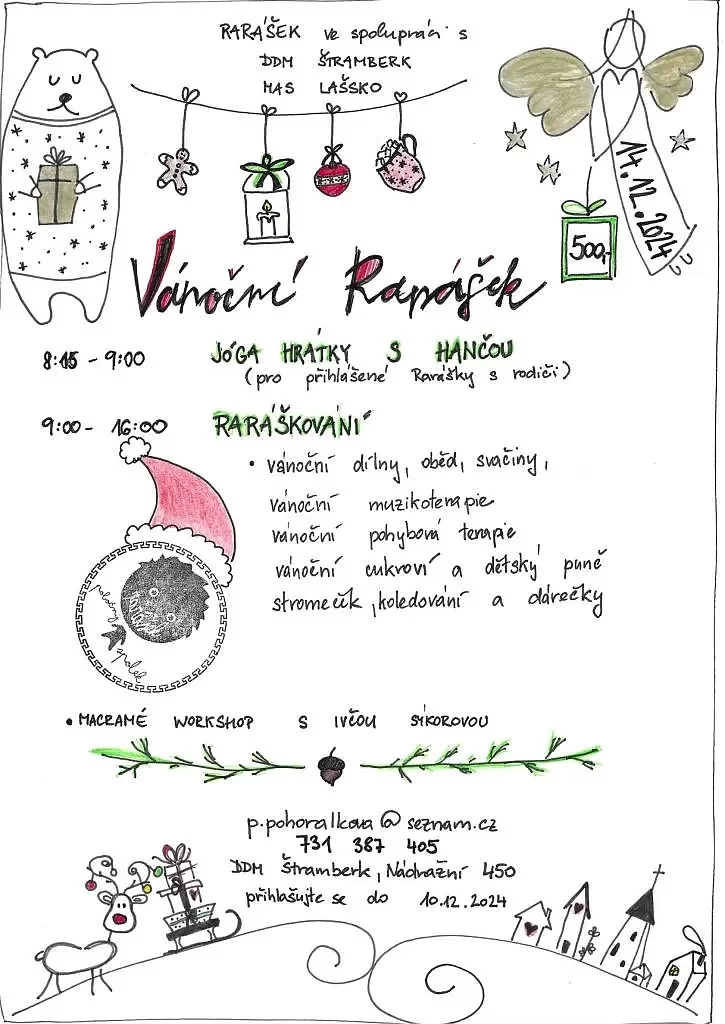 RARÁŠEK ve spolupráci s
DDM ŠTRAMBERK
MAS LAŠSKO
14.12.2024
500,-
Vánoční Rarášek
8:15 - 9:00 JÓGA HRÁTKY S HANČOU
(pro přihlášené Rarášky s rodiči)
9:00 - 16:00 RARÁŠKOVÁNÍ
• vánoční dílny, oběd, svačiny,
vánoční muzikoterapie
vánoční pohybová terapie
vánoční cukroví a dětský punč
stromeček, koledování a dárečky
spolek
• MACRAMÉ WORKSHOP S IVČOU SIKOROVOU
p.pohoralkova@seznam.cz
731 387 405
DDM Štramberk, Nádražní 450
přihlašujte se do 10.12.2024